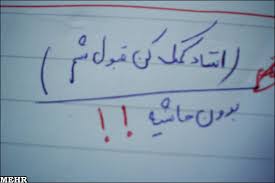 (استاد کمک کن قبول شم)
بدون حاشیه !!
MEHR